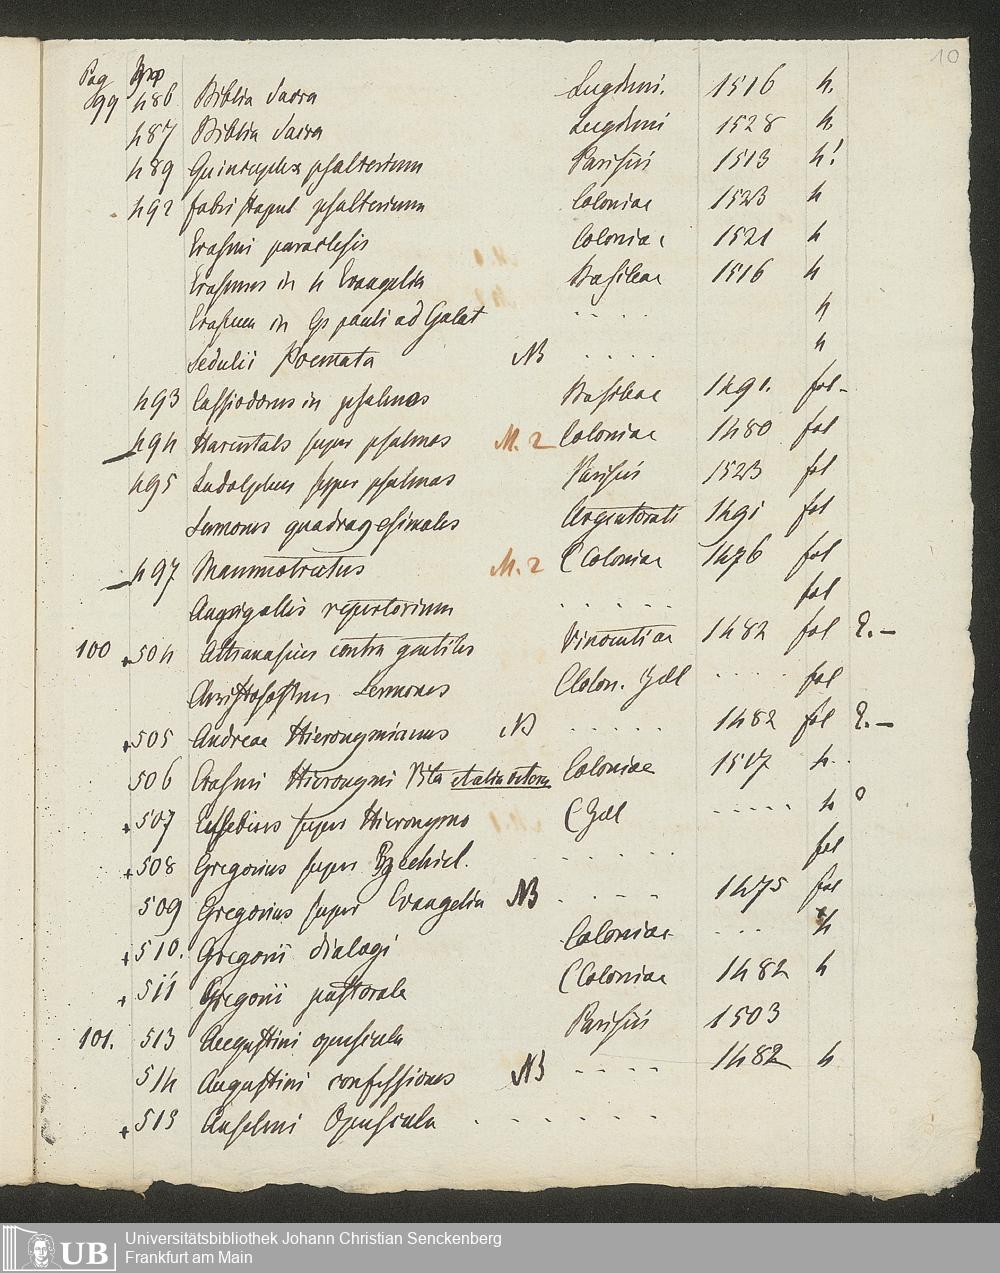 10
Pag No
99 486 Biblia Sacra Lugduni. 1516 4.
487 Biblia Sacra Lugduni 1528 4
489 Quincuplex psalterium Parisiis 1513 4!
492 fabri stapul psalterium Coloniae 1523 4
Erasmi paraclesis Coloniae 1521 4
Erasmus in 4 Evangelia Basileae 1516 4
Erasmus in Ep pauli ad Galat . . . . 4
Sedulii Poemata NB . . . . . 4
493 Cassiodorus in psalmos Basileae 1491. fol-
494 Harentals super psalmos M. 2 Coloniae 1480 fol
495 Ludolphus super psalmos Parisiis 1523 fol
Sermones quadragesimales Argentorati 1491 fol
497 Mammotrectus M. 2 C Coloniae 1476 fol
repertorium . . . . . . fol
100 +504 Athanasius contra gentiles Vincentiae 1482 fol 2.-
Sermones C Colon. Zell . . . . . fol
+505 Andreae Hieronymianus NB . . . . . 1482 fol 2.-
506 Erasmi Hieronymi Vita Coloniae 1517 4.
+507 Eusebius super Hieronymo C Zell . . . . . 4
+508 Gregorius super Ezechiel. . . . . . fol
509 Gregorius super Evangelia NB . . . . 1475 fol
+510. Gregorii dialogi Coloniae . . . 4
+511 Gregorii pastorale C Coloniae 1482 4
101. 513 Augustini opuscula Parisiis 1503
514 Augustini confessiones NB . . . . 1482 4
+515 Anselmi Opuscula . . . . . .
UB
Universitätsbibliothek Johann Christian Senckenberg
Frankfurt am Main